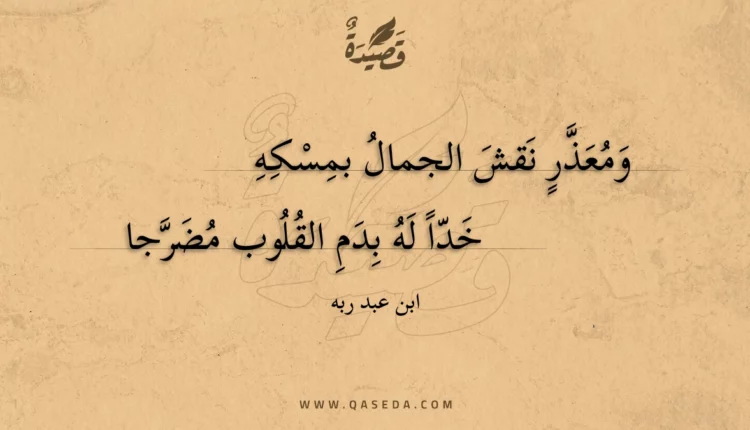 قَصِيْدَةٌ
وَمُعَذَّرٍ نَقشَ الجمالُ بمِسْكِهِ
خَدّاً لَهُ بِدَمِ القُلُوب مُضَرَّجا
ابن عبد ربه
WWW.QASEDA.COM